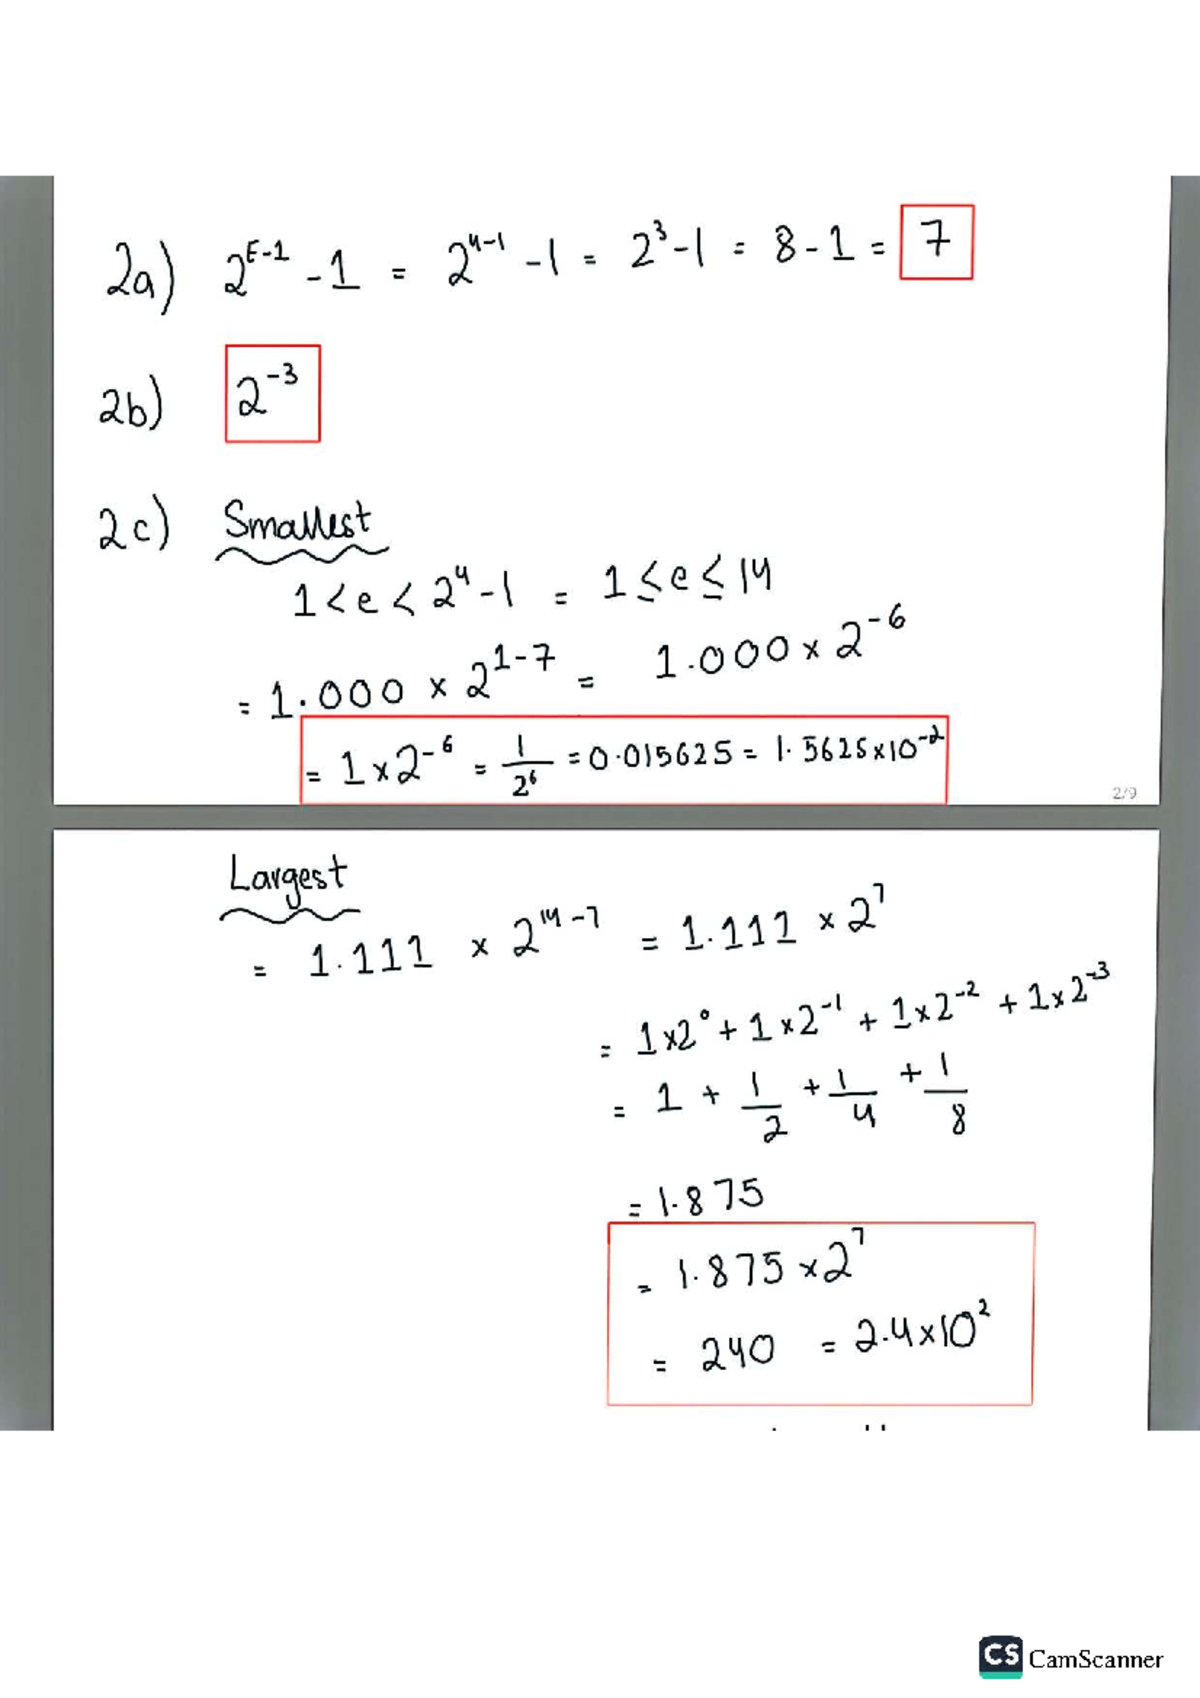 2a) 2^(E-1) - 1 = 2^(4-1) - 1 = 2^3 - 1 = 8 - 1 = 7
2b) 2^-3
2c) Smallest
1 < e < 2^4 - 1 = 1 ≤ e ≤ 14
= 1.000 × 2^(1-7) = 1.000 × 2^-6
= 1 × 2^-6 = 1/2^6 = 0.015625 = 1.5625 × 10^-2
2/9
Largest
= 1.111 × 2^(14-7) = 1.111 × 2^7
= 1×2^0 + 1×2^-1 + 1×2^-2 + 1×2^-3
= 1 + 1/2 + 1/4 + 1/8
= 1.875
= 1.875 × 2^7
= 240 = 2.4 × 10^2
CS CamScanner